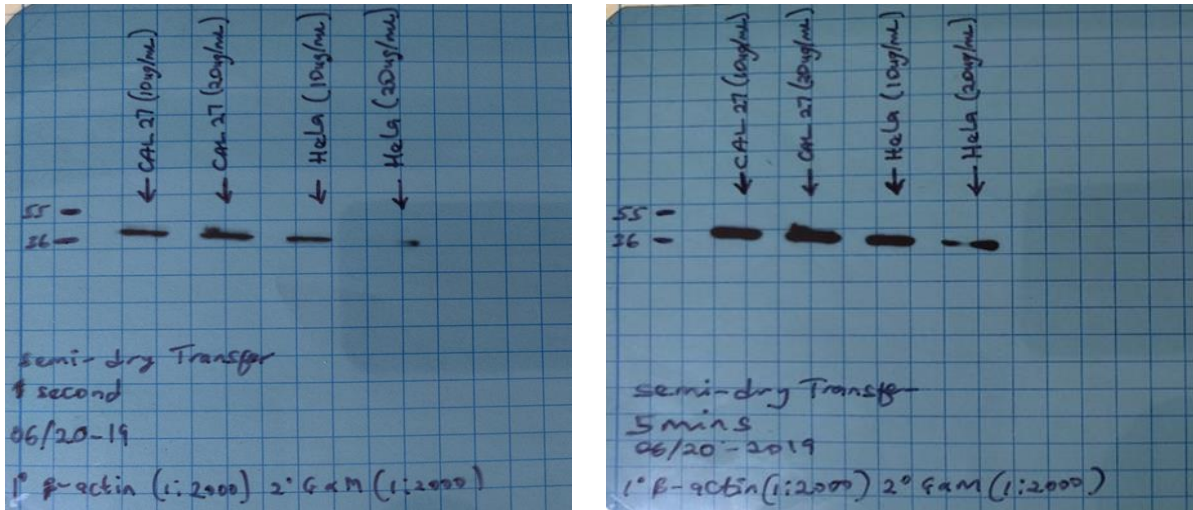 CAL 27 (10ug/mL)
CAL 27 (20ug/mL)
HeLa (10ug/mL)
HeLa (20ug/mL)
55
36
semi-dry Transfer
1 second
06/20-19
1° β-actin (1:2000) 2° GαM (1:2000)
CAL 27 (10ug/mL)
CAL 27 (20ug/mL)
HeLa (10ug/mL)
HeLa (20ug/mL)
55
36
semi-dry Transfer
5 mins
06/20-2019
1° β-actin (1:2000) 2° GαM (1:2000)